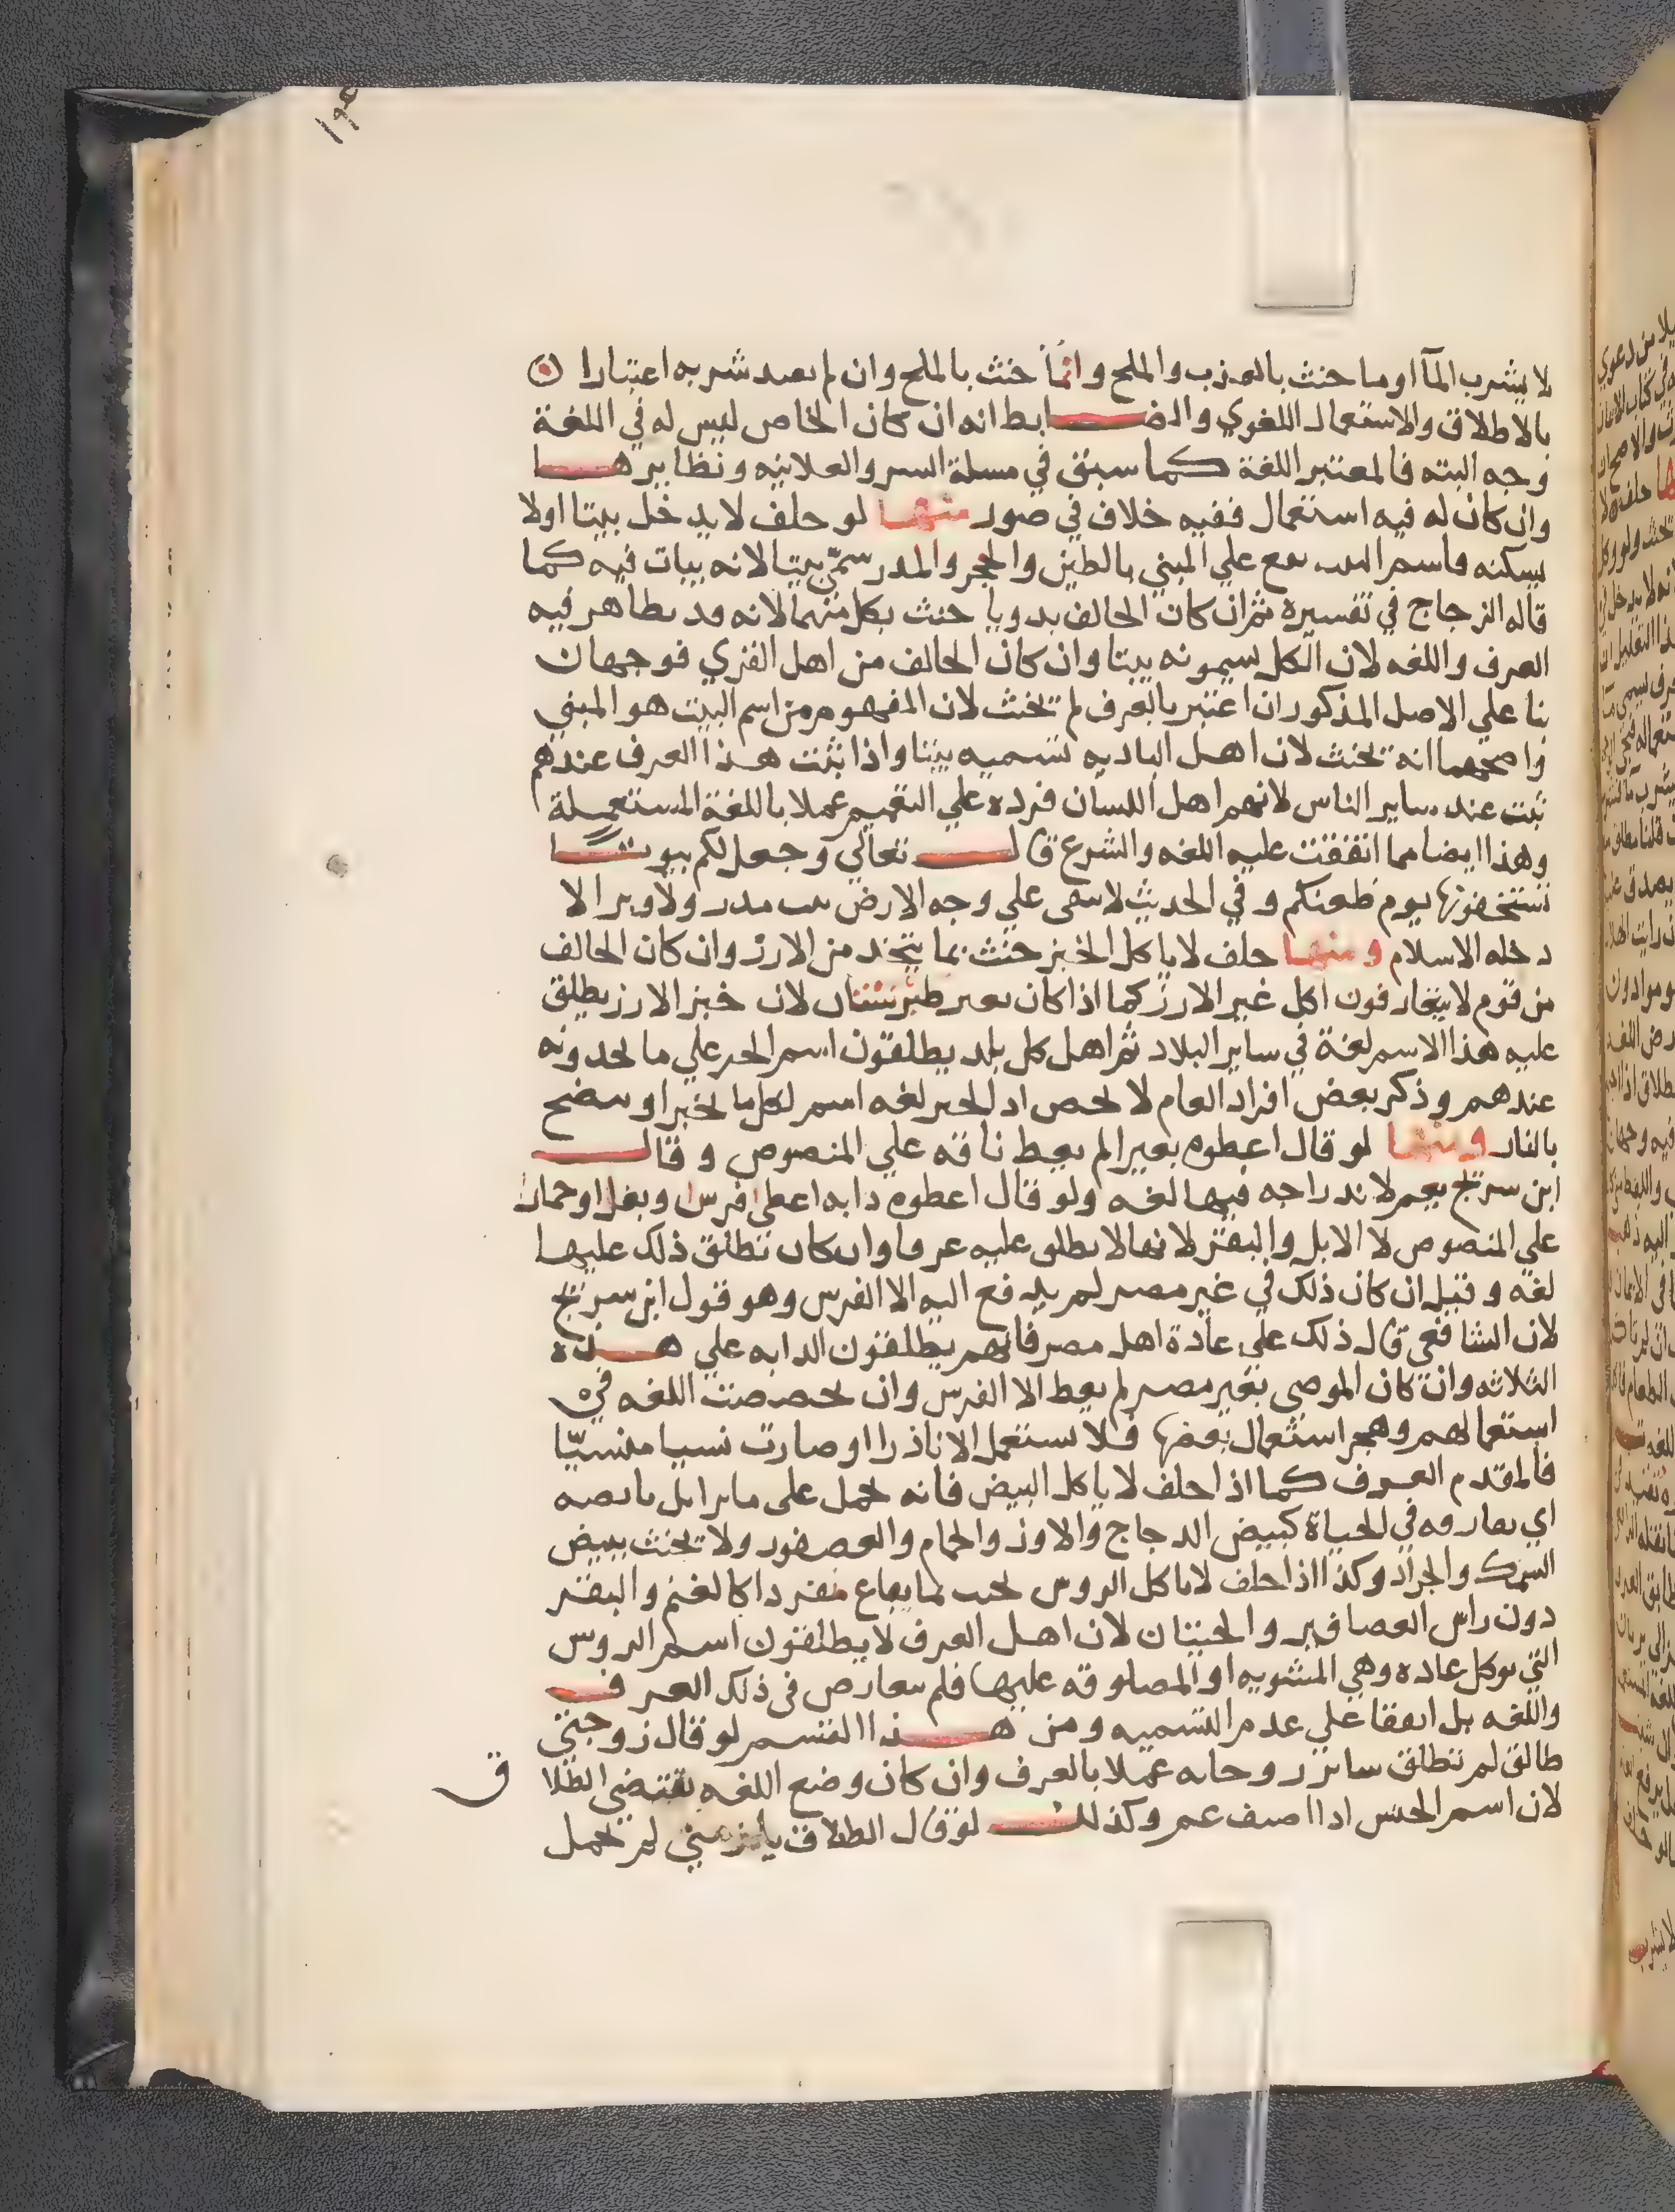 ١٩٥
لا يشرب المآ او ما حنث بالعذب والملح وانما حنث بالملح وان لم يعتد شربه اعتبارا
بالاطلاق والاستعمال اللغوي والضابط انه ان كان الخاص ليس له في اللغة
وجه البته فالمعتبر اللغة كما سبق في مسلة السر والعلانيه ونظايرها
وان كان له فيه استعمال ففيه خلاف في صور منها لو حلف لا يدخل بيتا اولا
يسكنه فاسم البيت يقع علي المبني بالطين والحجر والمدر سمّي بيتا لانه يبات فيه كما
قاله الزجاج في تفسيره ثم ان كان الحالف بدويا حنث بكل منهما لانه قد تظاهر فيه
العرف واللغه لان الكل يسمونه بيتا وان كان الحالف من اهل القري فوجهان
بنا علي الاصل المذكور ان اعتبر بالعرف لم يحنث لان المفهوم من اسم البيت هو المبني
واصحهما انه يحنث لان اهل الباديه تسميه بيتا واذا ثبت هذا العرف عندهم
ثبت عند ساير الناس لانهم اهل اللسان فرده علي التعميم عملا باللغة المستعملة
وهذا ايضا مما اتفقت عليه اللغه والشرع قال تعالي وجعل لكم بيوتا
تستخفونها يوم ظعنكم وفي الحديث لا يبقى علي وجه الارض بيت مدر ولا وبر الا
دخله الاسلام ومنها حلف لا ياكل الخبز حنث بما يتخذ من الارز وان كان الحالف
من قوم لا يتعارفون اكل غير الارز كما اذا كان بغير طبرستان لان خبز الارز يطلق
عليه هذا الاسم لغة في ساير البلاد ثم اهل كل بلد يطلقون اسم الخبز علي ما يجدونه
عندهم وذكر بعض افراد العام لا يخص اذ الخبز لغه اسم لكل ما يخبز او ينضج
بالنار ومنها لو قال اعطوه بعيرا لم يعط ناقه علي المنصوص وقال
ابن سريج يعم لاندراجه فيها لغه ولو قال اعطوه دابه اعطي فرسا وبغلا او حمارا
علي المنصوص لا الابل والبقر لانها لا يطلق عليه عرفا وان كان تطلق ذلك عليها
لغه وقيل ان كان ذلك في غير مصر لم يدفع اليه الا الفرس وهو قول ابن سريج
لان الشافعي قال ذلك علي عادة اهل مصر فانهم يطلقون الدابه علي هذه
الثلاثه وان كان الموصي بغير مصر لم يعط الا الفرس وان تخصصت اللغه في
استعمالهم وهجر استعمال بعضها فلا يستعمل الا نادرا او صارت نسيا منسيّا
فالمقدم العرف كما اذا حلف لا ياكل البيض فانه يحمل على ما يزايل بايضه
اي يفارقه في الحياة كبيض الدجاج والاوز والحمام والعصفور ولا يحنث ببيض
السمك والجراد وكذا اذا حلف لا ياكل الروس يحنث لما يباع منفردا كالغنم والبقر
دون راس العصافير والحيتان لان اهل العرف لا يطلقون اسم الروس
التي توكل عاده وهي المشويه او المصلوقه عليها فلم يتعارض في ذلك العرف
واللغه بل اتفقا علي عدم التسميه ومن هذا القسم لو قال زوجتي
طالق لم تطلق ساير زوجاته عملا بالعرف وان كان وضع اللغه يقتضي الطلا
ق
لان اسم الجنس اذا اضيف عم وكذلك لو قال الطلاق يلزمني لم يحمل